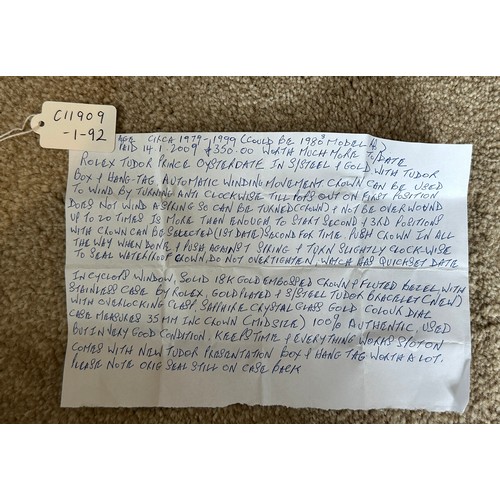 C11909
-1-92
AGE CIRCA 1979-1999 (COULD BE 1980S MODEL)
PAID 14.1.2009 £350.00 WORTH MUCH MORE T/DATE
ROLEX TUDOR PRINCE OYSTERDATE IN S/STEEL & GOLD WITH TUDOR
BOX & HANG-TAG AUTOMATIC WINDING MOVEMENT CROWN CAN BE USED
TO WIND BY TURNING ANTI CLOCKWISE TILL POPS OUT ON FIRST POSITION
DOES NOT WIND A SPRING SO CAN BE TURNED (CROWN) & NOT BE OVERWOUND
UP TO 20 TIMES IS MORE THAN ENOUGH TO START SECOND & 3RD POSITIONS
WITH CROWN CAN BE SELECTED (1ST DATE) SECOND FOR TIME. PUSH CROWN IN ALL
THE WAY WHEN DONE & PUSH AGAINST SPRING & TURN SLIGHTLY CLOCK-WISE
TO SEAL WATERPROOF CROWN, DO NOT OVERTIGHTEN, WATCH HAS QUICKSET DATE
IN CYCLOPS WINDOW, SOLID 18K GOLD EMBOSSED CROWN & FLUTED BEZEL WITH
STAINLESS CASE BY ROLEX, GOLD PLATED & S/STEEL TUDOR BRACELET (NEW)
WITH OVERLOCKING CLASP, SAPPHIRE CRYSTAL GLASS GOLD COLOUR DIAL
CASE MEASURES 35MM INC CROWN (MIDSIZE) 100% AUTHENTIC, USED
BUT IN VERY GOOD CONDITION. KEEPS TIME & EVERYTHING WORKS SPOT ON
COMES WITH NEW TUDOR PRESENTATION BOX & HANG TAG WORTH A LOT.
PLEASE NOTE ORIG SEAL STILL ON CASE BACK